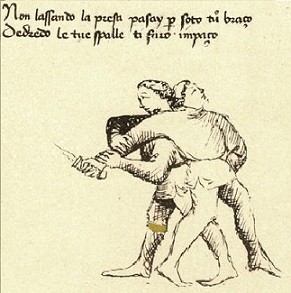 Non lassando la presa pasay p soto tuo braço
Dedredo le tue spalle ti faro impaço